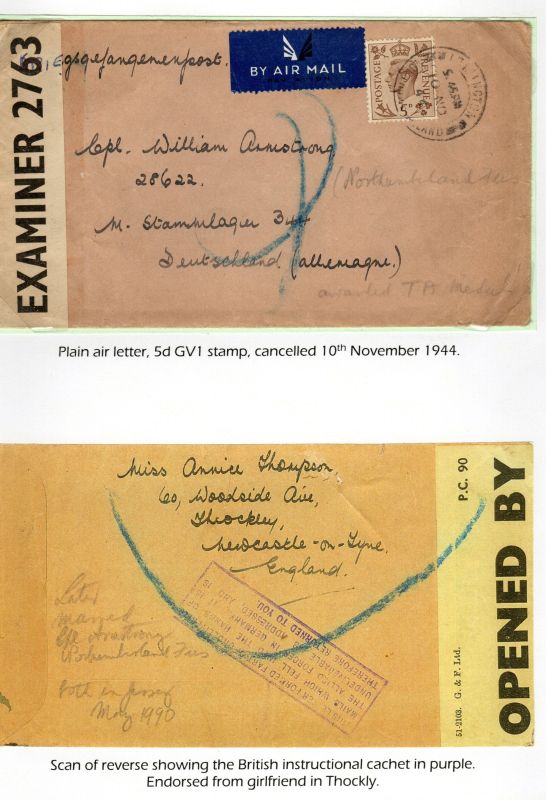 EXAMINER 2763
Kriegsgefangenenpost.
BY AIR MAIL
PAR AVION
POSTAGE REVENUE
5D
Cpl. William Armstrong
28622.
(Northumberland Fus
M. Stammlager 344
Deutschland (allemagne.)
awarded T A Medal
Plain air letter, 5d GV1 stamp, cancelled 10th November 1944.
Miss Annice Thompson,
60, Woodside Ave,
Throckley,
Newcastle-on-Tyne.
England.
P.C. 90
OPENED BY
51-2103. G. & F. Ltd.
THE ALLIED FORCES
UNDELIVERABLE AS ADDRESSED, AND IS
THEREFORE RETURNED TO YOU.
Later
married
Cpl Armstrong
Northumberland Fus
May 1990
Scan of reverse showing the British instructional cachet in purple.
Endorsed from girlfriend in Thockly.